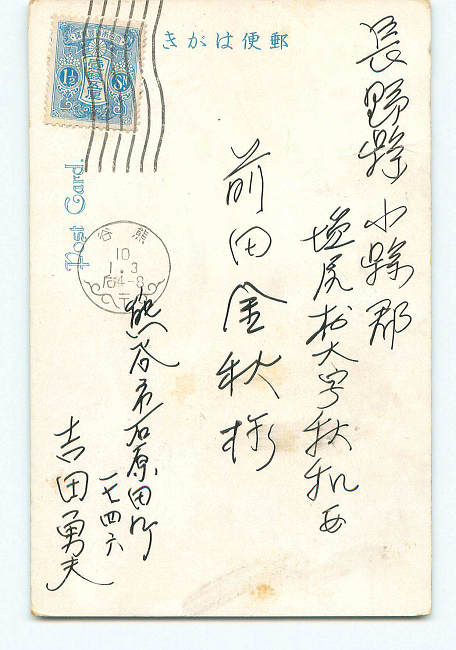 きがは便郵
長野縣小縣郡
塩尻村大字秋和
前田金秋様
熊谷市石原田町
一七四六
吉田勇夫
Post Card.
熊谷
10
1.3
后4-8
1½ Sn